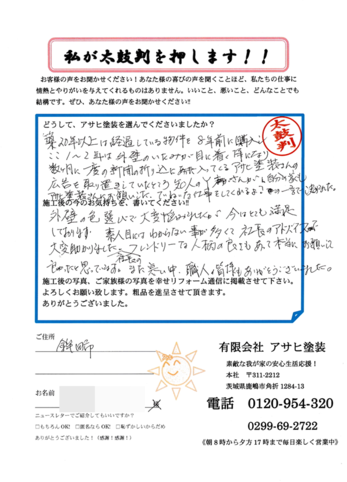 私が太鼓判を押します！！
お客様の声をお聞かせください！あなた様の喜びの声を聞くことほど、私たちの仕事に
情熱とやりがいを与えてくれるものはありません。いいこと、悪いこと、どんなことでも
結構です。ぜひ、あなた様の声をお聞かせください！！
どうして、アサヒ塗装を選んでくださいましたか？
太鼓判
築20年以上は経過している物件を8年前に購入し
ここ1～2年は外壁のいたみが目に着く様になり
数ヶ月に一度の新聞の折り込みに入ってくるアサヒ塗装さんの
広告を
施工後の今のお気持ちを、書いてください！！
外壁の色選びで大変悩みましたが、今はとても満足
しております。素人目にはわからない事が多くて社長のアドバイスで
大変助かりました。フレンドリーな人柄の良さもあって本当にお願いして
良かったと思っています。また寒い中、職人の皆様もありがとうございました。
施工後の写真、ご家族様の写真を幸せリフォーム通信に掲載させて下さい。
よろしくお願い致します。粗品を進呈させて頂きます。
ありがとうございました。
ご住所
鉾田市
お名前
様
ニュースレターでご紹介してもいいですか？
□もちろんOK！ □匿名ならOK! □恥ずかしいからだめ
ありがとうございました！（感謝！感謝！）
有限会社 アサヒ塗装
素敵な我が家の安心生活応援！
本社 〒311-2212
茨城県鹿嶋市角折 1284-13
電話 0120-954-320
0299-69-2722
《朝8時から夕方17時まで毎日楽しく営業中》